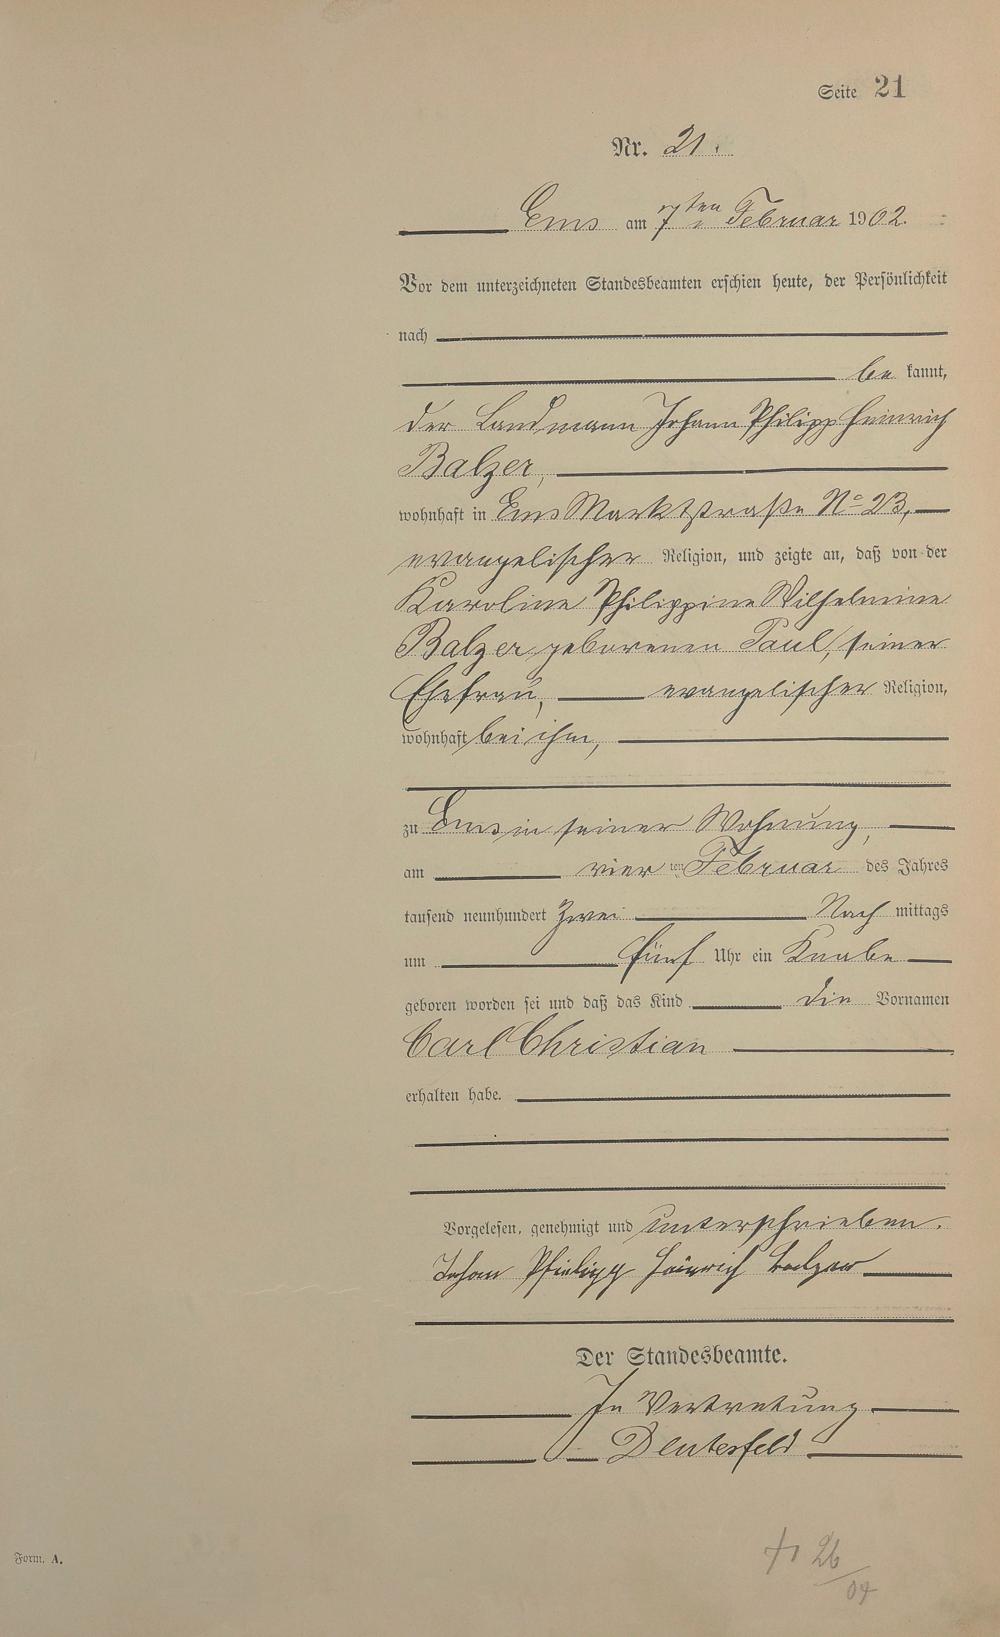 Seite 21
Nr. 21.
Ems am 7ten Februar 1902.
Vor dem unterzeichneten Standesbeamten erschien heute, der Persönlichkeit
nach
be kannt,
der Landmann Johann Philipp Heinrich
Balzer,
wohnhaft in Ems Marktstraße No 23,
evangelischer Religion, und zeigte an, daß von der
Karoline Philippine Wilhelmine
Balzer geborenen Paul, seiner
Ehefrau, evangelischer Religion,
wohnhaft bei ihm,
zu Ems in seiner Wohnung,
am vier ten Februar des Jahres
tausend neunhundert zwei Nach mittags
um fünf Uhr ein Knabe
geboren worden sei und daß das Kind die Vornamen
Carl Christian
erhalten habe.
Vorgelesen, genehmigt und unterschrieben.
Johan Philipp Heinrich Balzer
Der Standesbeamte.
In Vertretung
Form. A.
26